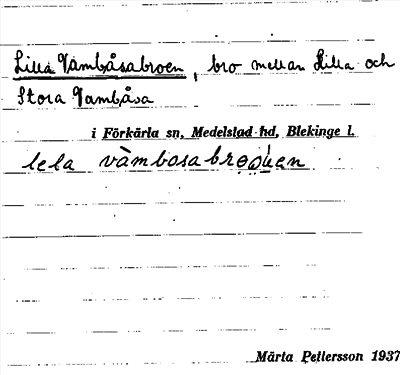 Lilla Vambåsabroen, bro mellan Lilla och
Stora Vambåsa
i Förkärla sn, Medelstad hd, Blekinge l.
lela vàmbosabro̤o̤en
Märta Pettersson 1937